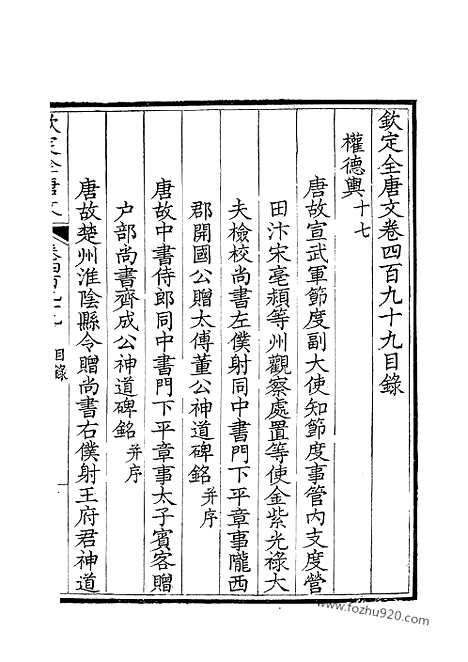 欽定全唐文卷四百九十九目錄
權德輿十七
唐故宣武軍節度副大使知節度事管內支度營
田汴宋亳潁等州觀察處置等使金紫光祿大
夫檢校尚書左僕射同中書門下平章事隴西
郡開國公贈太傅董公神道碑銘并序
唐故中書侍郎同中書門下平章事太子賓客贈
户部尚書齊成公神道碑銘并序
唐故楚州淮陰縣令贈尚書右僕射王府君神道
欽定全唐文
卷四百九十九
目錄
一
www.fozhu920.com